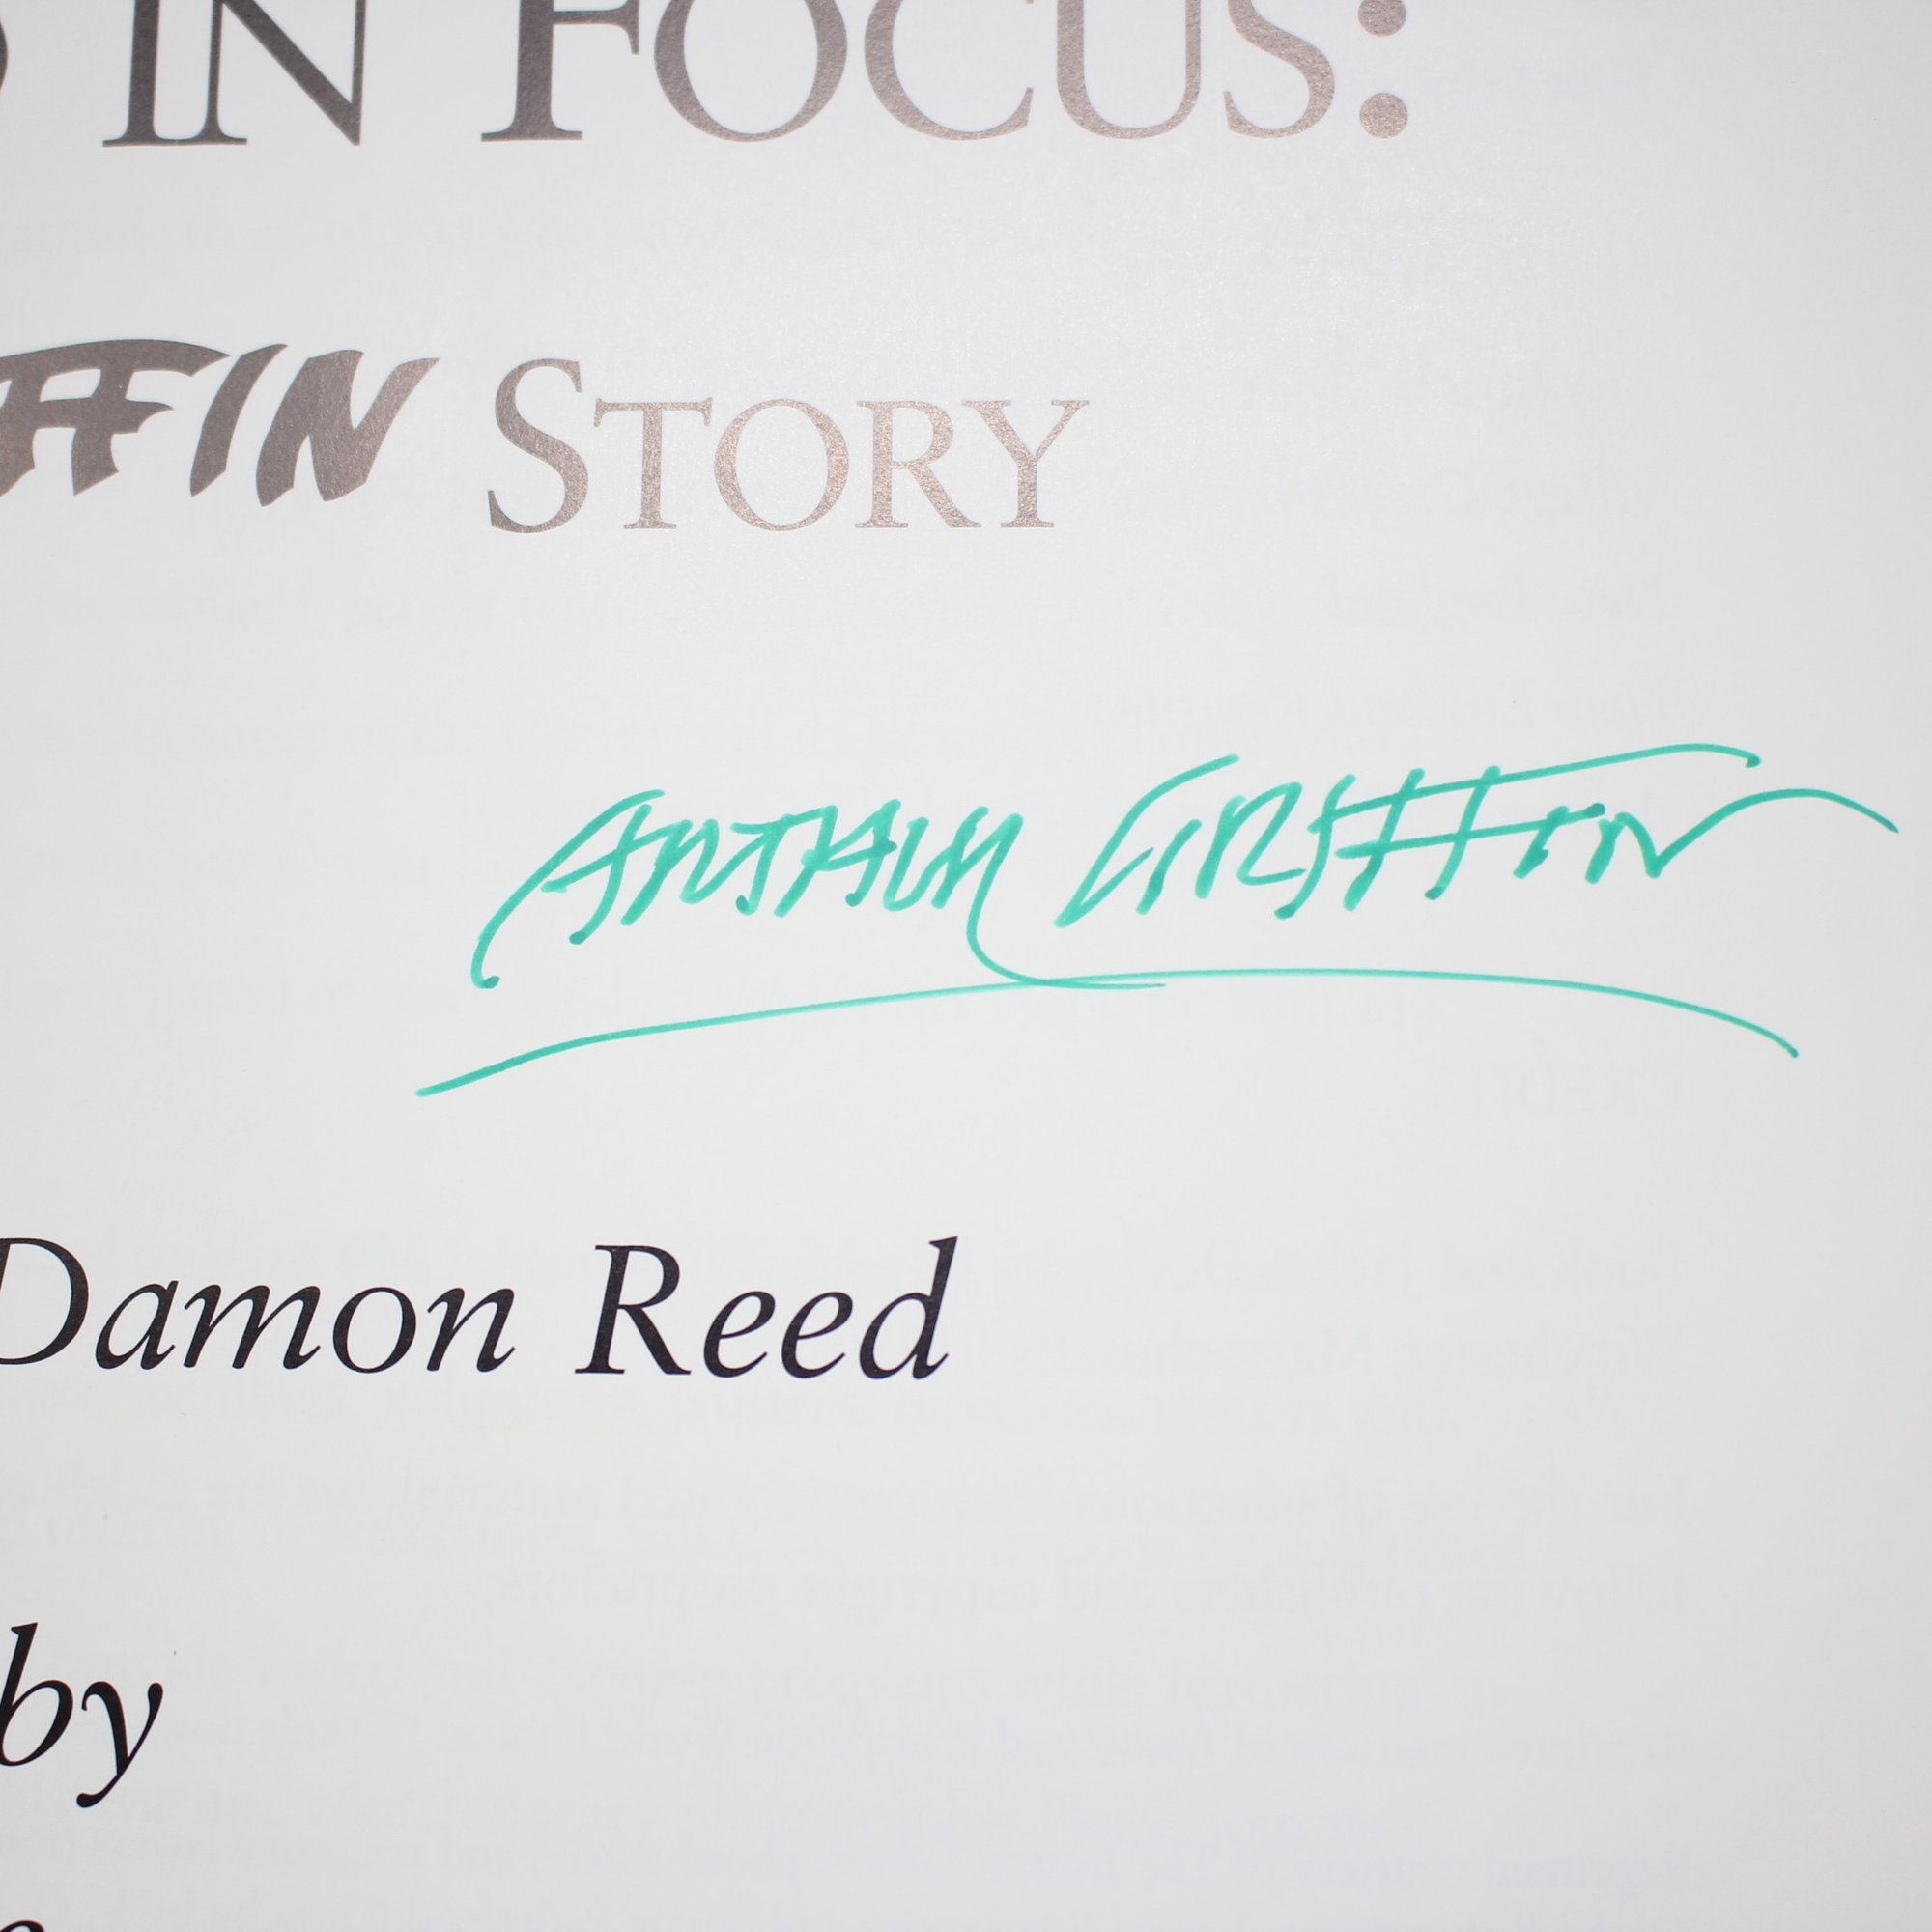 IN FOCUS:
FFIN STORY
ARTHUR GRIFFIN
Damon Reed
by